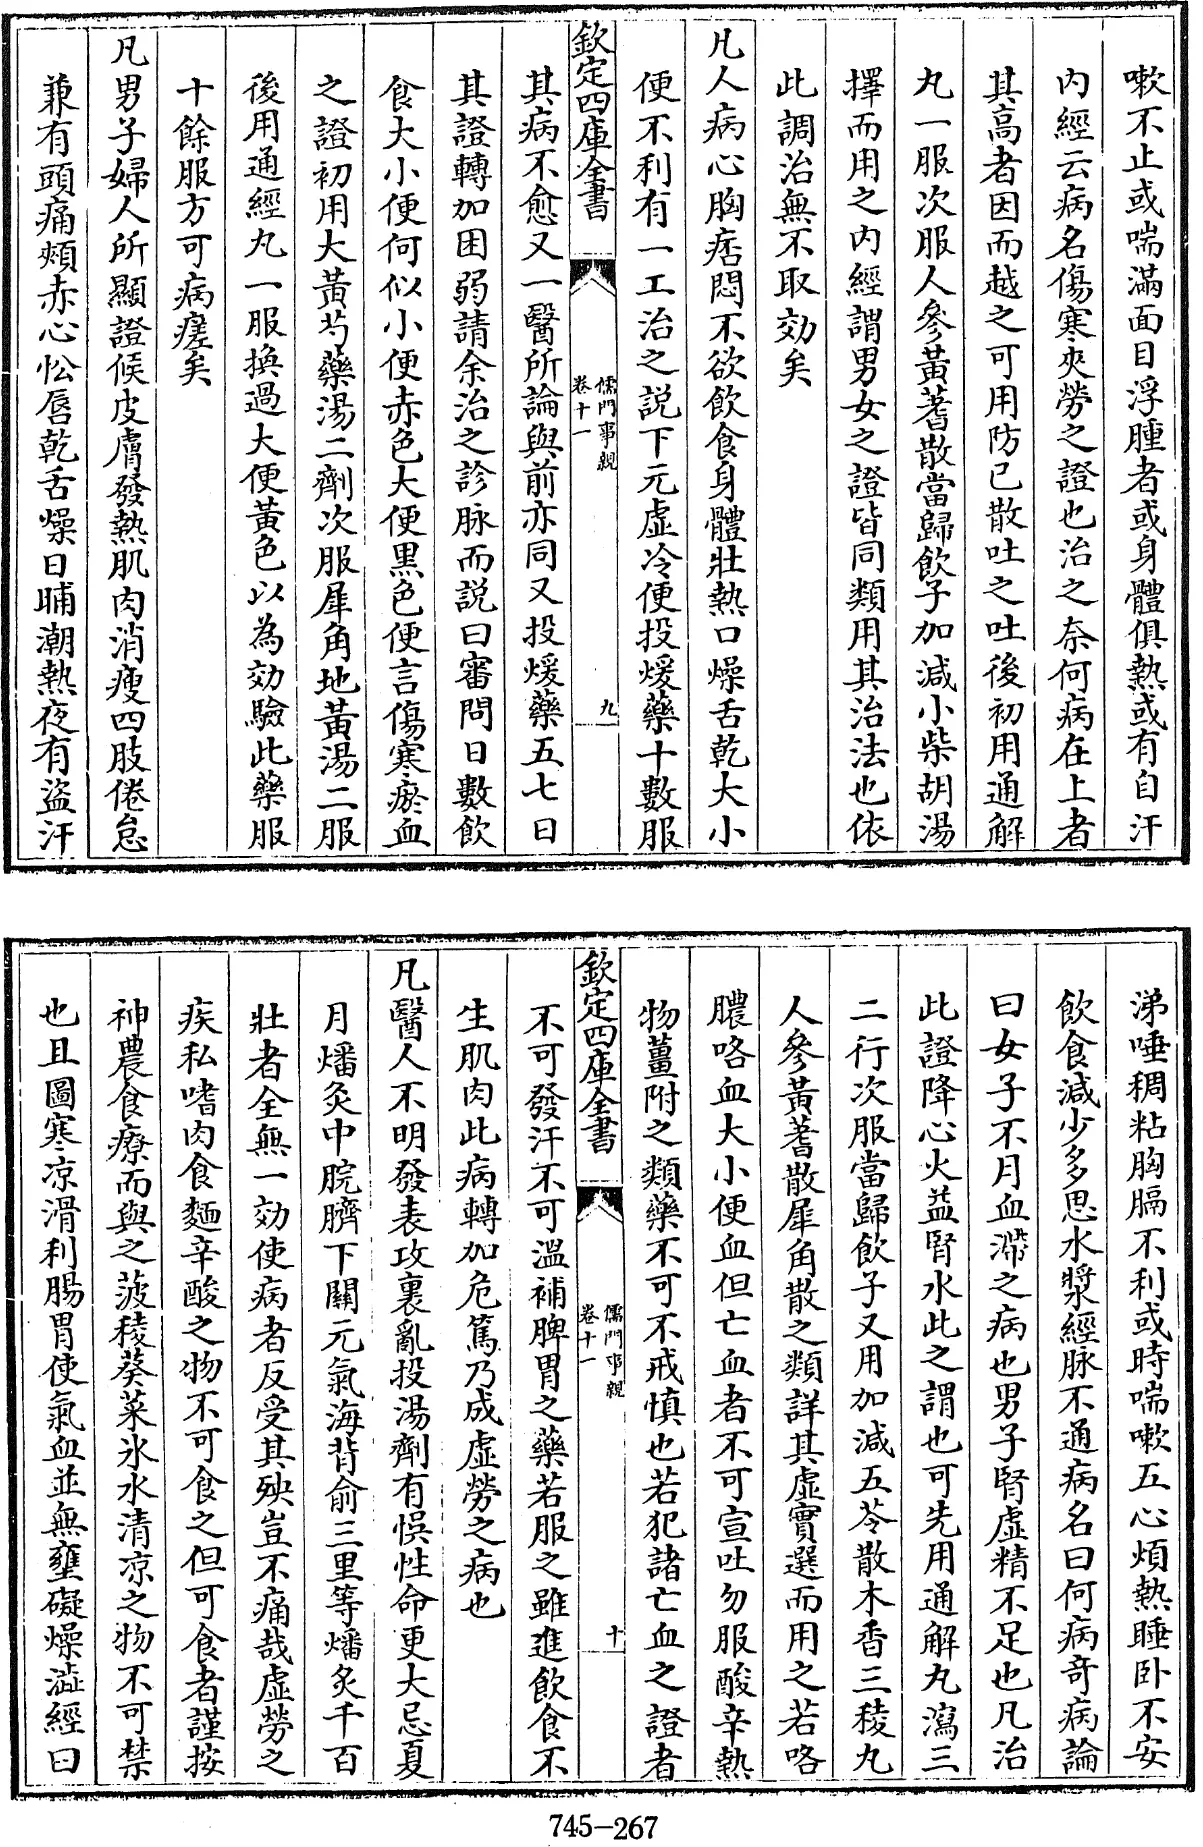 嗽不止或喘滿面目浮腫者或身體俱熱或有自汗
内經云病名傷寒夾勞之證也治之奈何病在上者
其高者因而越之可用防已散吐之吐後初用通解
丸一服次服人參黃蓍散當歸飲子加減小柴胡湯
擇而用之内經謂男女之證皆同類用其治法也依
此調治無不取効矣
凡人病心胸痞悶不欲飲食身體壯熱口燥舌乾大小
便不利有一工治之説下元虛冷便投煖藥十數服
欽定四庫全書
儒門事親
卷十一
九
其病不愈又一醫所論與前亦同又投煖藥五七日
其證轉加困弱請余治之診脉而説曰審問日數飲
食大小便何似小便赤色大便黒色便言傷寒瘀血
之證初用大黃芍藥湯二劑次服犀角地黃湯二服
後用通經丸一服換過大便黃色以為効驗此藥服
十餘服方可病瘥矣
凡男子婦人所顯證候皮膚發熱肌肉消瘦四肢倦怠
兼有頭痛頰赤心忪唇乾舌燥日晡潮熱夜有盜汗
涕唾稠粘胸膈不利或時喘嗽五心煩熱睡卧不安
飲食減少多思水漿經脉不通病名曰何病竒病論
曰女子不月血滯之病也男子腎虛精不足也凡治
此證降心火益腎水此之謂也可先用通解丸瀉三
二行次服當歸飲子又用加減五苓散木香三稜丸
人參黃蓍散犀角散之類詳其虛實選而用之若咯
膿咯血大小便血但亡血者不可宣吐勿服酸辛熱
物薑附之類藥不可不戒慎也若犯諸亡血之證者
欽定四庫全書
儒門事親
卷十一
十
不可發汗不可溫補脾胃之藥若服之雖進飲食不
生肌肉此病轉加危篤乃成虛勞之病也
凡醫人不明發表攻裏亂投湯劑有悞性命更大忌夏
月燔灸中脘臍下關元氣海背俞三里等燔炙千百
壯者全無一効使病者反受其殃豈不痛哉虛勞之
疾私嗜肉食麵辛酸之物不可食之但可食者謹按
神農食療而與之菠稜葵菜氷水清凉之物不可禁
也且圖寒凉滑利腸胃使氣血並無壅礙燥澁經曰
745-267